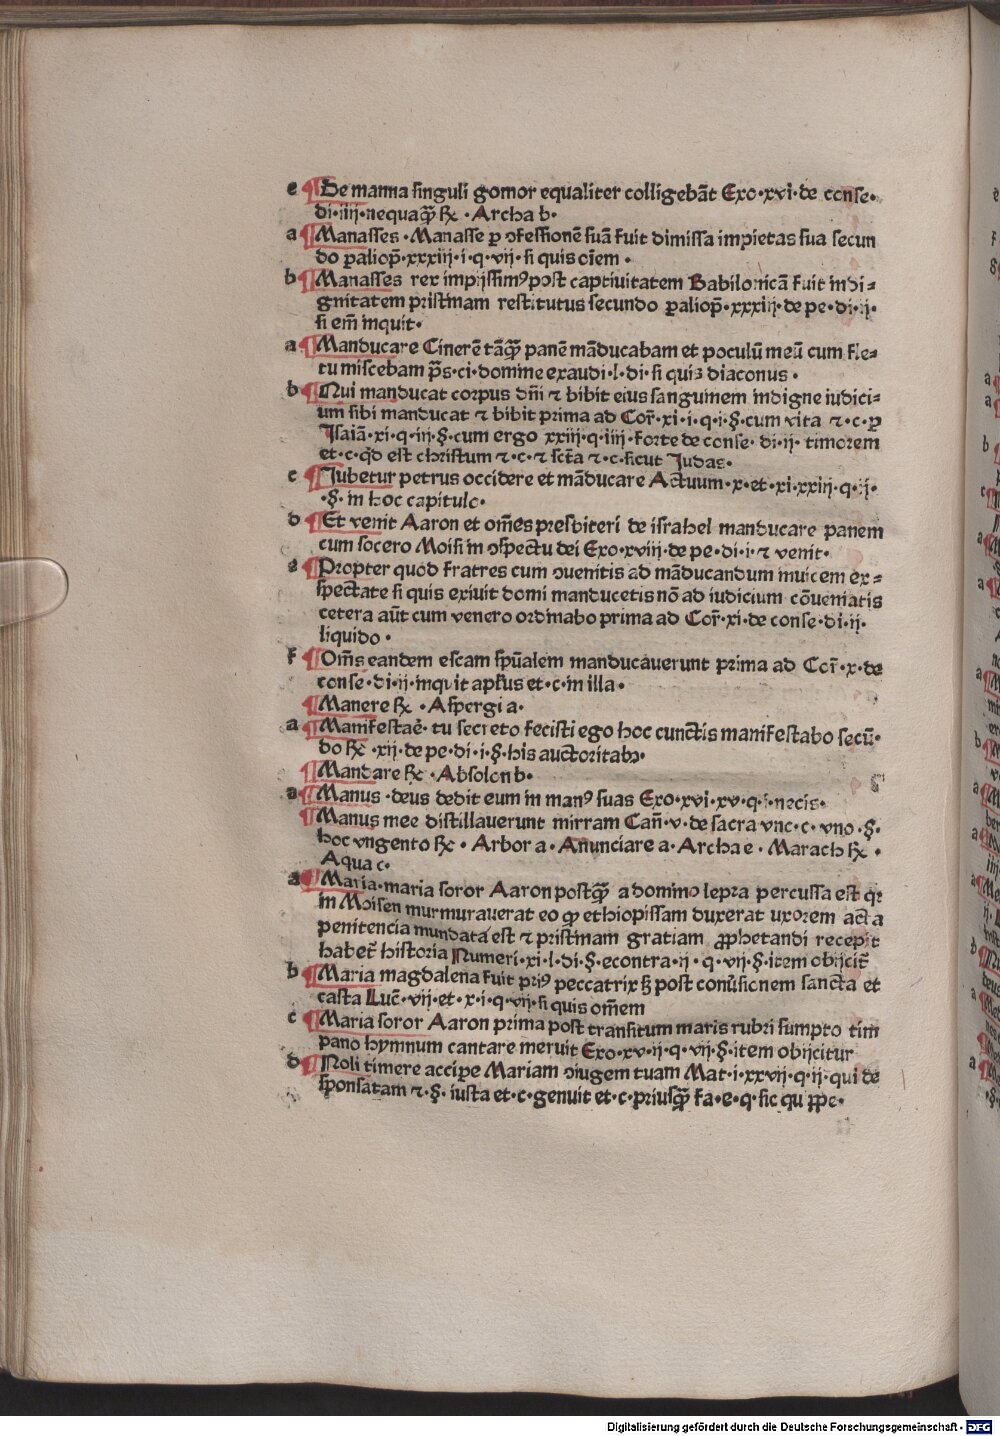 e ¶De manna singuli gomor equaliter colligebãt Exo·xvi·de conse·
di·iiij·nequaqᷓ R̃ ·Archa b·
a ¶Manasses·Manasse ꝑ ↄfessionẽ suã fuit dimissa impietas sua secun
do paliop̃·xxxiij·i·q·vij·si quis oẽm·
b ¶Manasses rex impijssimꝰ post captiuitatem Babilonicã fuit in di=
gnitatem pristinam restitutus secundo paliop̃·xxxiij·de pe·di·ij·
si em̃ inquit·
a ¶Manducare Cinerẽ tãqᷓ panẽ mãducabam et poculũ meũ cum fle=
tu miscebam p̃s·ci·domine exaudi·l·di·si quis diaconus·
b ¶Qui manducat corpus dñi ⁊ bibit eius sanguinem indigne iudici=
um sibi manducat ⁊ bibit prima ad Cor̃·xi·i·q·i·§·cum vita ⁊·c·ꝑ
Isaiã·xi·q·iij·§·cum ergo xxiij·q·iiij·forte de conse·di·ij·timorem
et·c·qd̃ est christum ⁊·c·⁊ sct̃a ⁊·c·sicut Judas·
c ¶Jubetur petrus occidere et mãducare Actuum·x·et·xi·xxiij·q·ij·
·§·in hoc capitulo·
d ¶Et venit Aaron et om̃es presbiteri de israhel manducare panem
cum socero Moisi in ↄspectu dei Exo·xviij·de pe·di·i·⁊ venit·
e ¶Propter quod fratres cum ↄuenitis ad mãducandum inuicem ex=
spectate si quis exiuit domi manducetis nõ ad iudicium cõueniatis
cetera aũt cum venero ordinabo prima ad Cor̃·xi·de conse·di·ij·
liquido·
f ¶Om̃s eandem escam sp̃ualem manducauerunt prima ad Cor̃·x·de
conse·di·ij·inquit apl̃us et·c·in illa·
¶Manere R̃ ·Aspergi a·
a ¶Manifestaẽ·tu secreto fecisti ego hoc cunctis manifestabo secũ·
do R̃ ·xij·de pe·di·i·§·his auctoritabꝰ·
¶Mandare R̃ ·Absolon b·
a ¶Manus·deus dedit eum in manꝰ suas Exo·xvi·xv·q·i·necis·
¶Manus mee distillauerunt mirram Cañ·v·de sacra vnc·c·vno·§·
hoc vngento R̃ ·Arbor a·Anunciare a·Archa e·Marach R̃ ·
Aqua c·
a ¶Maria·maria soror Aaron postqᷓ a domino lepra percussa est qꝛ
in Moisen murmurauerat eo qꝫ ethiopissam duxerat uxorem acta
penitencia mundata est ⁊ pristinam gratiam ꝓphetandi recepit
habet̃ historia Numeri·xi·l·di·§·econtra·ij·q·vij·§·item obijcit̃
b ¶Maria magdalena fuit priꝰ peccatrix sꝫ post conũsionem sancta et
casta Luc̃·vij·et·x·i·q·vij·si quis om̃em
c ¶Maria soror Aaron prima post transitum maris rubri sumpto tim
pano hymnum cantare meruit Exo·xv·ij·q·vij·§·item obijcitur
d ¶Noli timere accipe Mariam ↄiugem tuam Mat·i·xxvij·q·ij·qui de
sponsatam ⁊·§·iusta et·c·genuit et·c·priusqᷓ fa·e·q·sic qu ꝓpe·
Digitalisierung gefördert durch die Deutsche Forschungsgemeinschaft - DFG